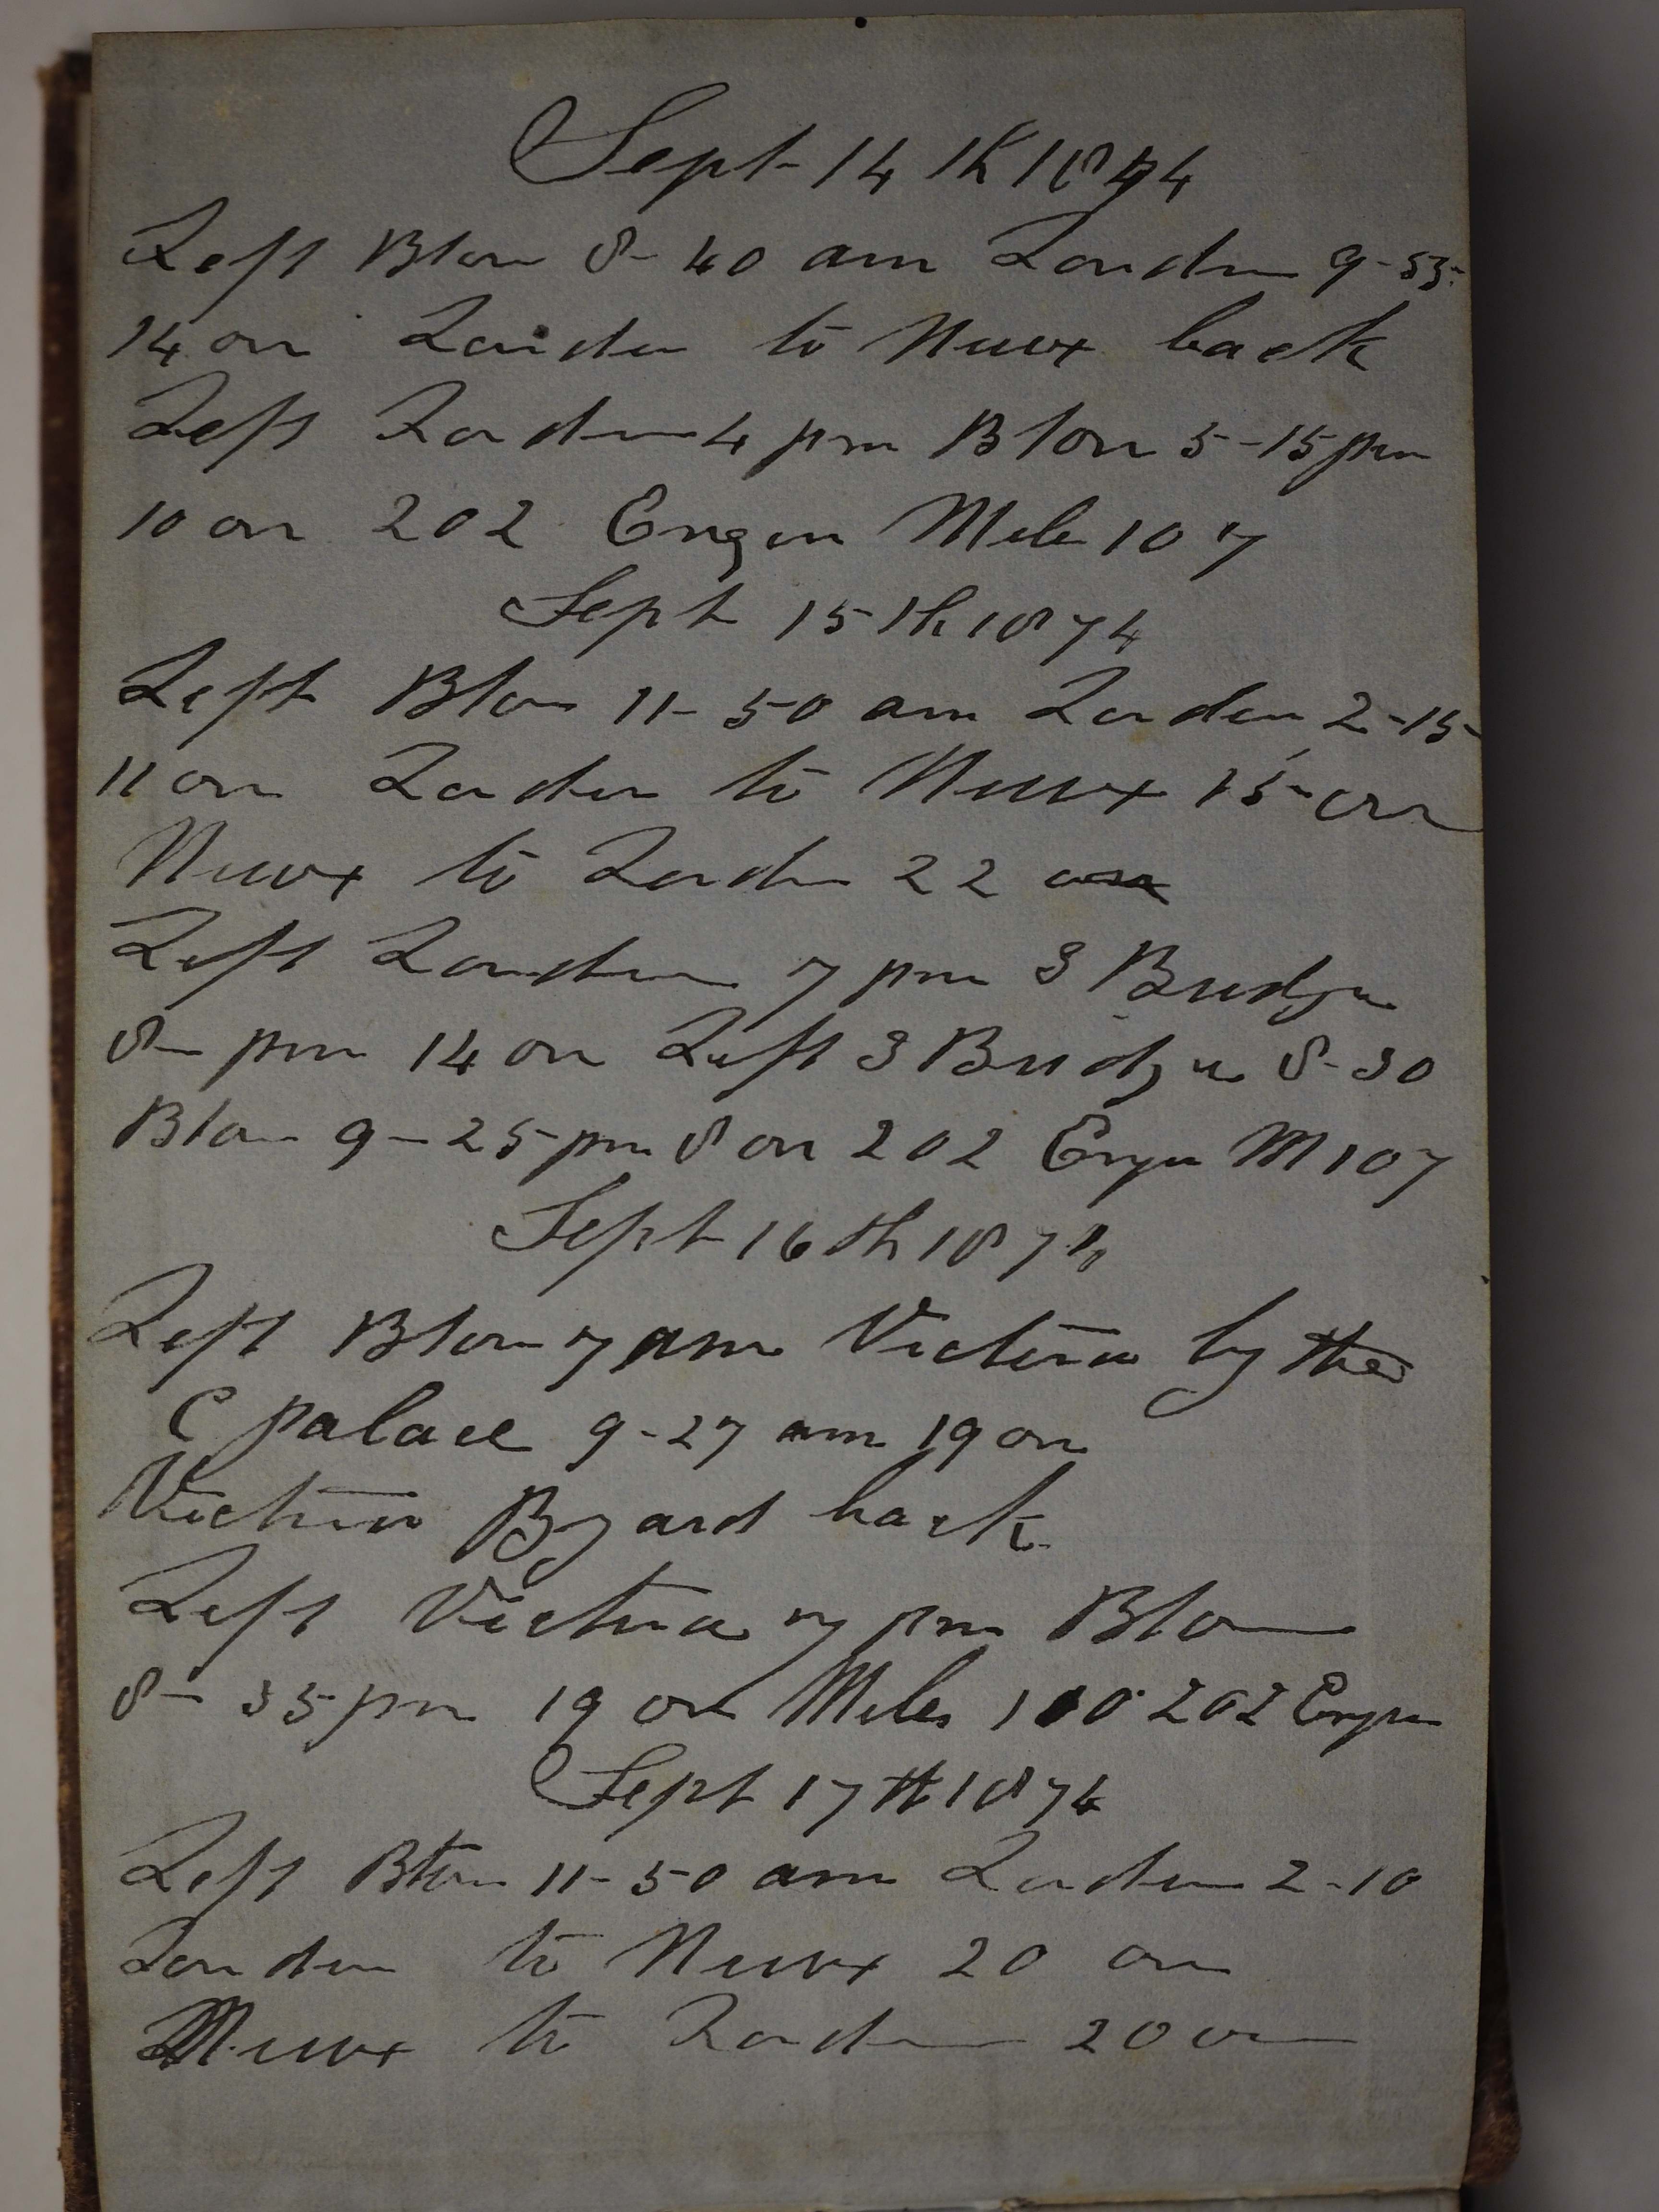 Sept 14th 1874
Left Bton 8-40 am London 9-53
14 on London to Newx back
Left London 4 pm Bton 5-15 pm
10 on 202 Engen Miles 107
Sept 15th 1874
Left Bton 11-50 am London 2-15
11 on London to Newx 15 on
Newx to London 22 on
Left London 7 pm 3 Bridges
8- pm 14 on Left 3 Bridges 8-30
Bton 9-25 pm 8 on 202 Engen M 107
Sept 16th 1874
Left Bton 7 am Victoria by the
C palace 9-27 am 19 on
Victoria B yard back
Left Victoria 7 pm Bton
8-35 pm 19 on Miles 100 202 Engen
Sept 17th 1874
Left Bton 11-50 am London 2-10
London to Newx 20 on
Newx to London 20 on